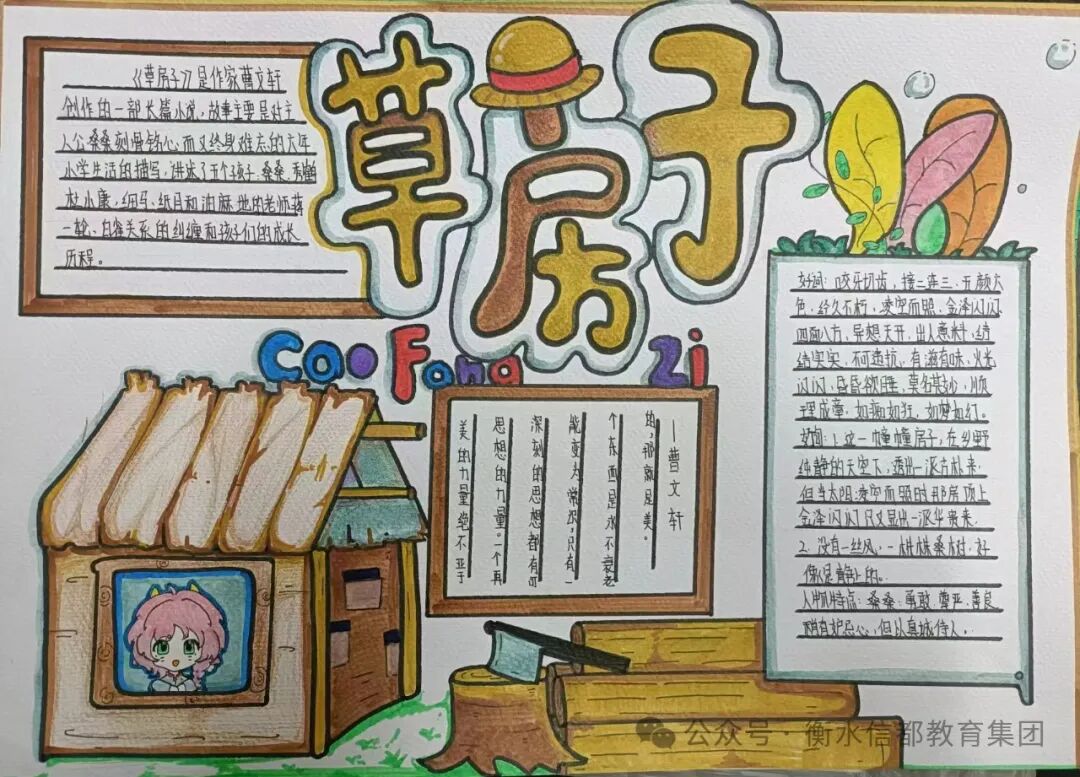 草房子
Cao Fang Zi
《草房子》是作家曹文轩
创作的一部长篇小说，故事主要是对主
人公桑桑刻骨铭心而又终身难忘的六年
小学生活的描写，讲述了五个孩子，桑桑、秃鹤
杜小康、细马、纸月和油麻地的老师蒋
一轮、白雀关系的纠缠和孩子们的成长
历程。
美的力量绝不亚于
思想的力量。一个再
深刻的思想都有可
能变为常识，只有一
个东西是永不衰老
的，那就是美。
—曹文轩
好词：咬牙切齿，接二连三、五颜六
色、经久不朽，凌空而照、金泽闪闪
四面八方、异想天开，出人意料、结
结实实、不可透抗、有滋有味、火光
闪闪、昏昏欲睡、莫名其妙、顺
理成章、如痴如狂、如梦如幻。
好句：1.这一幢幢房子，在乡野
纯静的天空下，透出一派古朴来，
但当太阳凌空而照时那房顶上
金泽闪闪只又显出一派华贵来．
2．没有一丝风，一株株桑树，好
像是静止的。
人物特点：桑桑：勇敢、尊严、善良
稍有妒忌心，但以真城侍人．
公众号·衡水信都教育集团